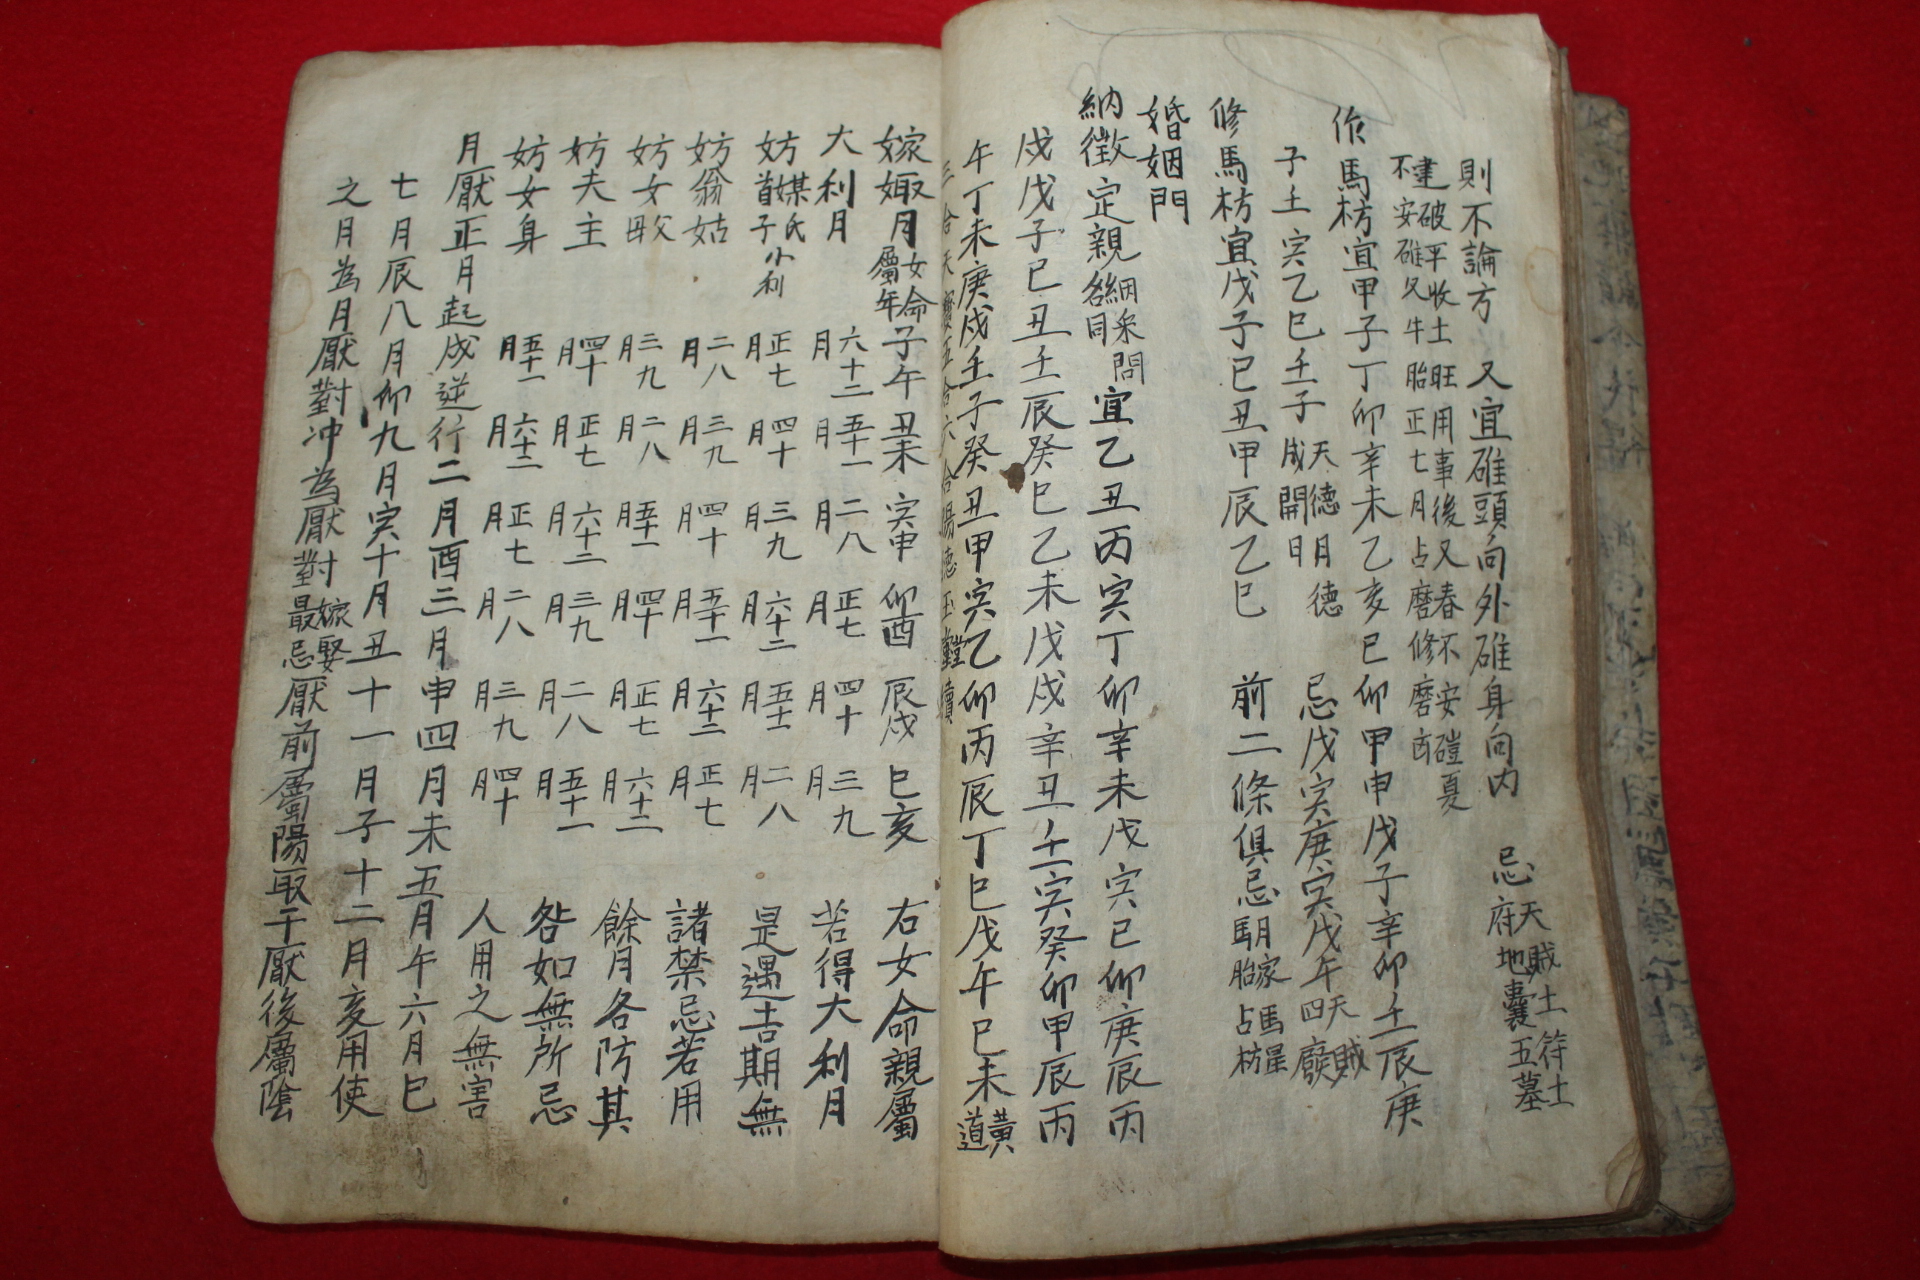 則不論方 又宜碓頭向外碓身向内 忌天賊土符土府地囊五墓
建破平收土旺用事後又春不安磑夏
不安碓又牛胎正七月占磨修磨
作馬枋宜甲子丁卯辛未乙亥己卯甲申戊子辛卯壬辰庚
子壬寅乙巳壬子天德月德成開日 忌戊寅庚寅戊午天賊四廢
修馬枋宜戊子己丑甲辰乙巳 前二條俱忌
婚姻門
納徵定親納采問 宜乙丑丙寅丁卯辛未戊寅己卯庚辰丙
戌戊子己丑壬辰癸巳乙未戊戌辛丑壬寅癸卯甲辰丙
午丁未庚戌壬子癸丑甲寅乙卯丙辰丁巳戊午己未黃道
三合天 五合六合陽德玉堂續
嫁娵月女命屬年 子午 丑未 寅申 卯酉 辰戌 巳亥 右女命親屬
大利月 六十二月 五十一月 二八月 正七月 四十月 三九月 若得大利月
妨媒氏首子小利 正七月 四十月 三九月 六十二月 五十一月 二八月 是遇吉期無
妨翁姑 二八月 三九月 四十月 五十一月 六十二月 正七月 諸禁忌若用
妨女父母 三九月 二八月 五十一月 四十月 正七月 六十二月 餘月各防其
妨夫主 四十月 正七月 六十二月 三九月 二八月 五十一月 咎如無所忌
妨女身 五十一月 六十二月 正七月 二八月 三九月 四十月 人用之無害
月厭正月起戌逆行二月酉三月申四月未五月午六月巳
七月辰八月卯九月寅十月丑十一月子十二月亥用使
之月為月厭對冲為厭對嫁娶最忌厭前屬陽取干厭後屬陰